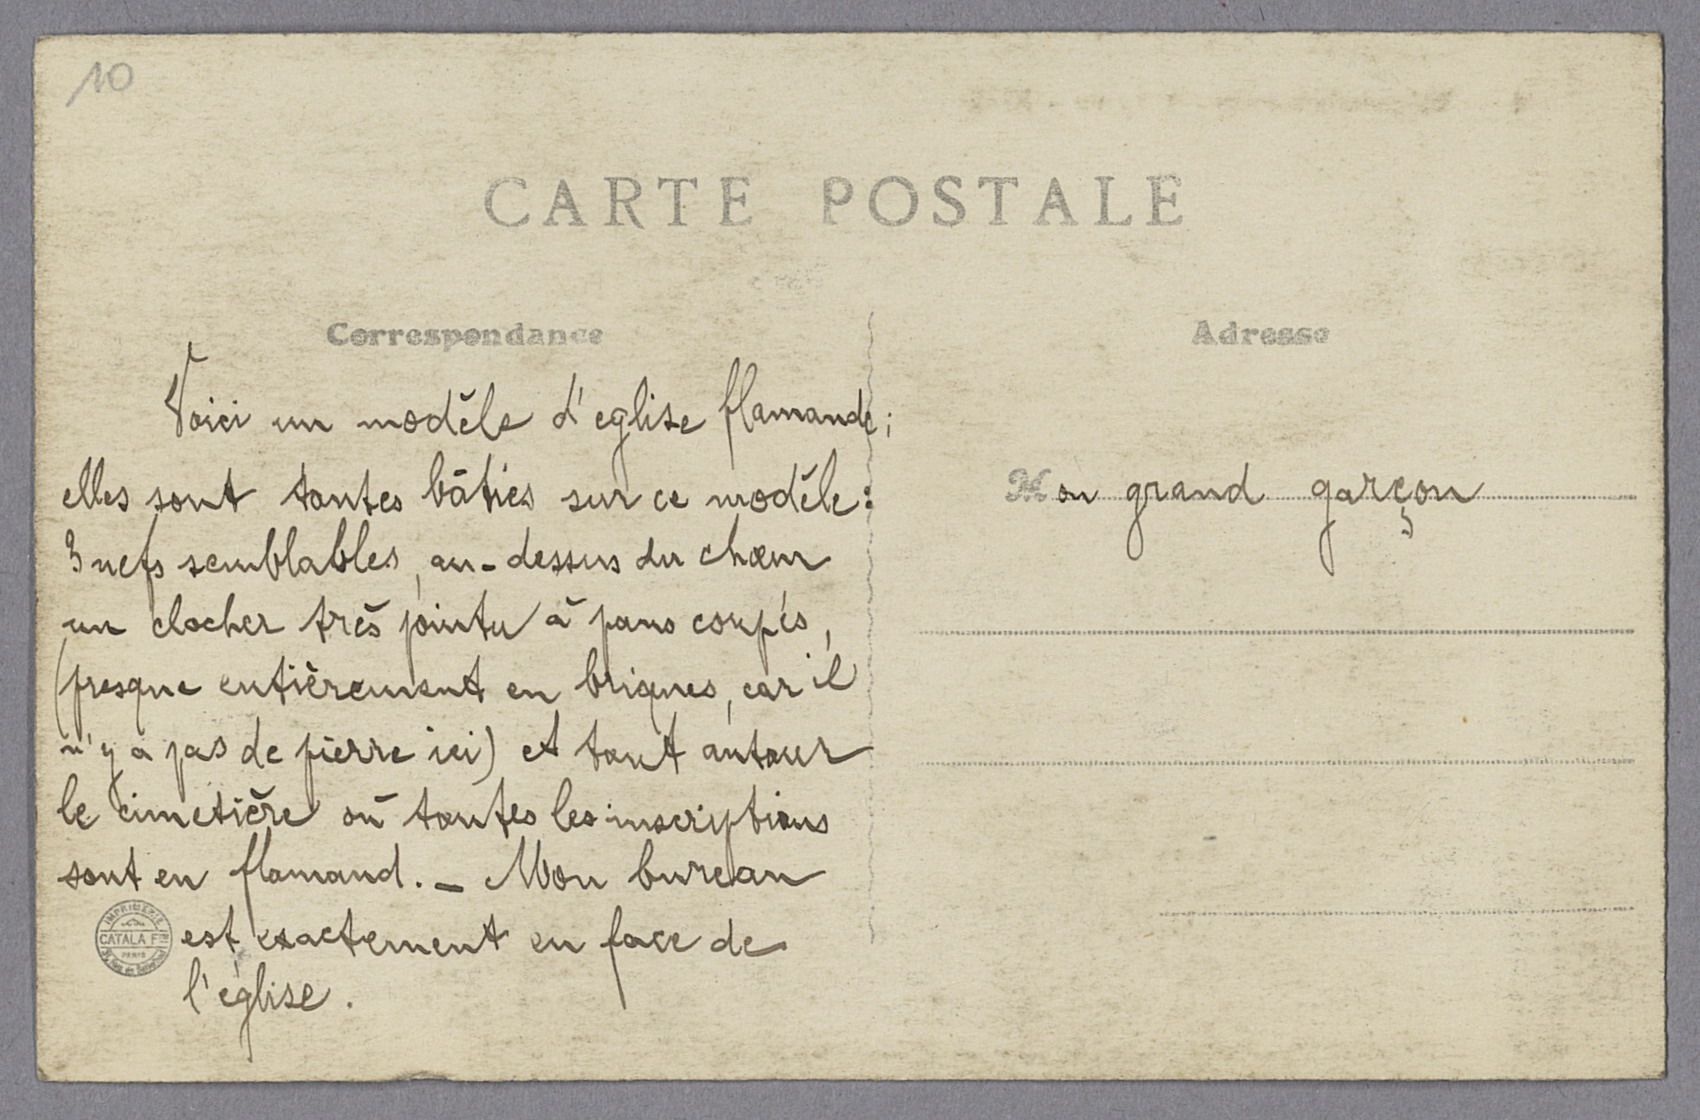 10
CARTE POSTALE
Correspondance
Voici un modèle d'eglise flamande;
elles sont toutes bâties sur ce modèle:
3 nefs semblables, au-dessus du chœur
un clocher très pointu à pans coupés,
(presque entièrement en briques, car il
n'y a pas de pierre ici) et tout autour
le cimetière où toutes les inscriptions
sont en flamand. _ Mon bureau
est exactement en face de
l'église.
IMPRIMERIE
CATALA Fres
PARIS
Adresse
Mon grand garçon